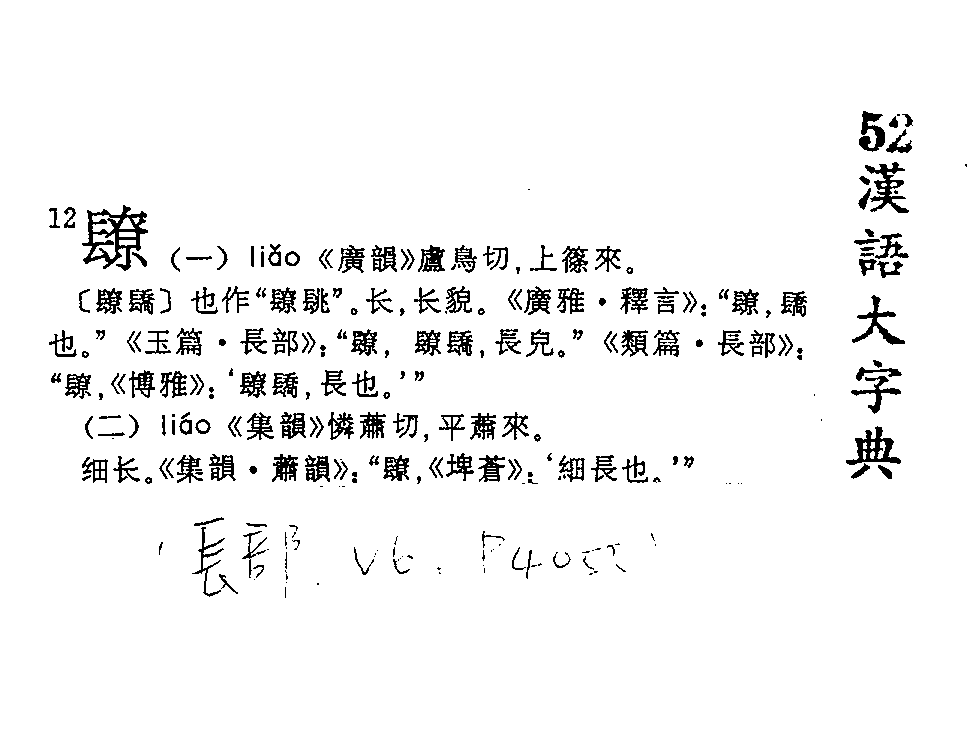 52
漢語大字典
12 镽 (一) liǎo 《廣韻》盧鳥切,上篠來。
〔镽〕也作“镽”。长,长貌。《廣雅·釋言》:“镽,
也。”《玉篇·長部》:“镽, 镽,長皃。”《類篇·長部》:
“镽,《博雅》:‘镽,長也。’”
(二) liáo 《集韻》憐蕭切,平蕭來。
细长。《集韻·蕭韻》:“镽,《埤蒼》:‘細長也。’”
'長部. V6. P4055'